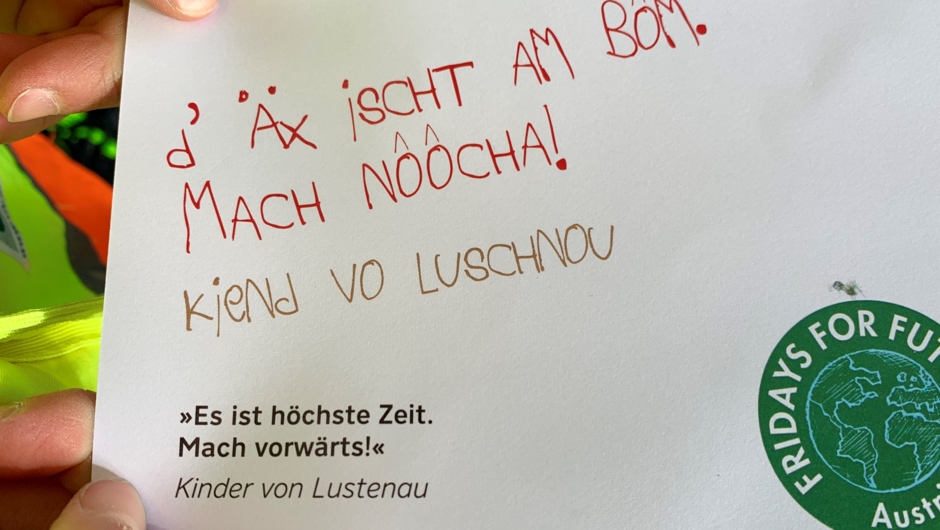 d' Äx ischt am Böm.
Mach nôôcha!
Kiend vo Luschnou
»Es ist höchste Zeit.
Mach vorwärts!«
Kinder von Lustenau
FRIDAYS FOR FUT
Austri